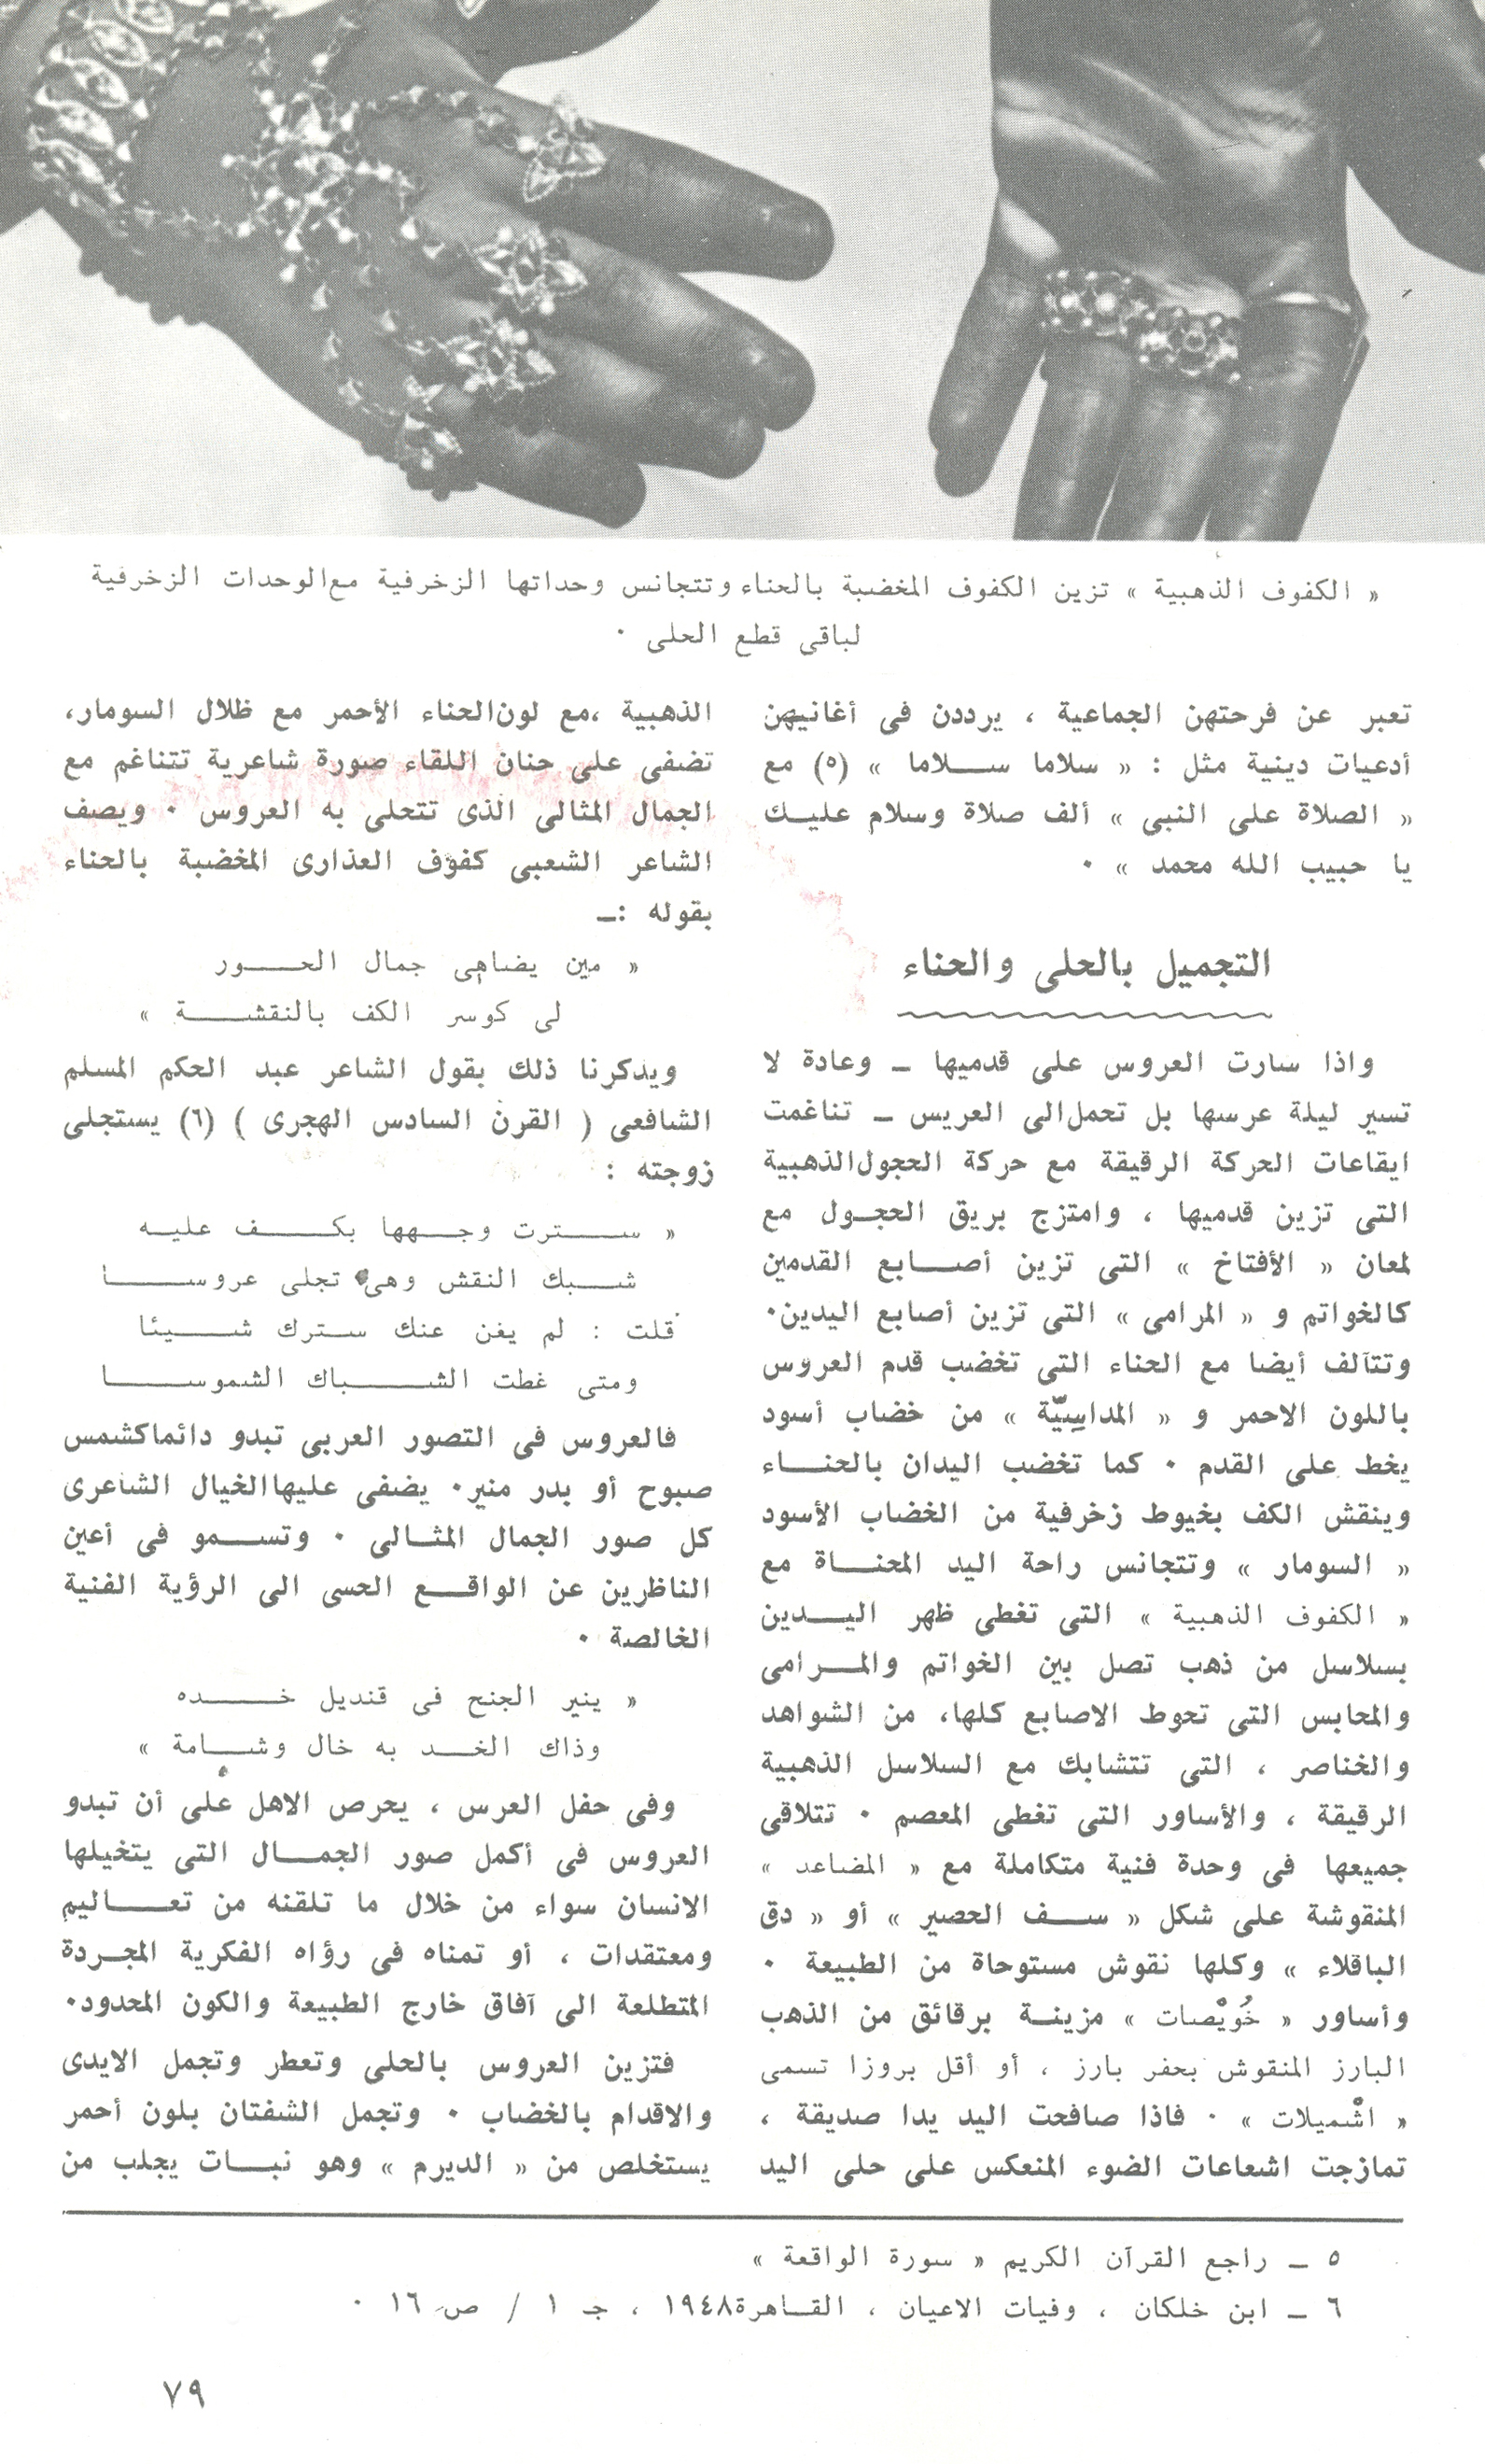 « الكفوف الذهبية » تزين الكفوف المخضبة بالحناء وتتجانس وحداتها الزخرفية مع الوحدات الزخرفية
لباقى قطع الحلى ٠
تعبر عن فرحتهن الجماعية ، يرددن فى أغانيهن
أدعيات دينية مثل : « سلاما ســـلاما » (٥) مع
« الصلاة على النبى » ألف صلاة وسلام عليــك
يا حبيب الله محمد » ٠
التجميل بالحلى والحناء
واذا سارت العروس على قدميها ــ وعادة لا
تسير ليلة عرسها بل تحمل الى العريس ــ تناغمت
ايقاعات الحركة الرقيقة مع حركة الحجول الذهبية
التى تزين قدميها ، وامتزج بريق الحجــول مع
لمعان « الأفتاخ » التى تزين أصــابع القدمين
كالخواتم و « المرامى » التى تزين أصابع اليدين٠
وتتآلف أيضا مع الحناء التى تخضب قدم العروس
باللون الاحمر و « المداسِيّة » من خضاب أسود
يخط على القدم ٠ كما تخضب اليدان بالحنــاء
وينقش الكف بخيوط زخرفية من الخضاب الأسود
« السومار » وتتجانس راحة اليد المحنــاة مع
« الكفوف الذهبية » التى تغطى ظهر اليــدين
بسلاسل من ذهب تصل بين الخواتم والمــرامى
والمحابس التى تحوط الاصابع كلها، من الشواهد
والخناصر ، التى تتشابك مع السلاسل الذهبية
الرقيقة ، والأساور التى تغطى المعصم ٠ تتلاقى
جميعها فى وحدة فنية متكاملة مع « المضاعد »
المنقوشة على شكل « ســف الحصير » أو « دق
الباقلاء » وكلها نقوش مستوحاة من الطبيعة ٠
وأساور « خُويْصات » مزينــة برقائق من الذهب
البارز المنقوش بحفر بارز ، أو أقل بروزا تسمى
« اشْميلات » ٠ فاذا صافحت اليد يدا صديقة ،
تمازجت اشعاعات الضوء المنعكس على حلى اليد
الذهبية ،مع لون الحناء الأحمر مع ظلال السومار،
تضفى على حنان اللقاء صورة شاعرية تتناغم مع
الجمال المثالى الذى تتحلى به العروس ٠ ويصف
الشاعر الشعبى كفوف العذارى المخضبة بالحناء
بقوله :ــ
« مين يضاهى جمال الحـــور
لى كوسر الكف بالنقشـــة »
ويدكرنا ذلك بقول الشاعر عبد الحكم المسلم
الشافعى ( القرن السادس الهجرى ) (٦) يستجلى
زوجته :
« ســـترت وجــهها بكـــف عليــه
شـــبك النقش وهى تجلى عروســـا
قلت : لم يغن عنك ســترك شـــيئا
ومتى غطت الشـــباك الشموســـا
فالعروس فى التصور العربى تبدو دائما كشمس
صبوح أو بدر منير٠ يضفى عليها الخيال الشاعرى
كل صور الجمال المثــالى ٠ وتســمو فى أعين
الناظرين عن الواقــع الحسى الى الرؤية الفنية
الخالصة ٠
« ينير الجنح فى قنديل خـــده
وذاك الخــد به خال وشــامة »
وفى حفل العرس ، يحرص الاهل على أن تبدو
العروس فى أكمل صور الجمــال التى يتخيلها
الانسان سواء من خلال ما تلقنه من تعـــاليم
ومعتقدات ، أو تمناه فى رؤاه الفكرية المجــردة
المتطلعة الى آفاق خارج الطبيعة والكون المحدود٠
فتزين العروس بالحلى وتعطر وتجمل الايدى
والاقدام بالخضاب ٠ وتجمل الشفتان بلون أحمر
يستخلص من « الديرم » وهو نبــات يجلب من
٥ ــ راجع القرآن الكريم « سورة الواقعة »
٦ ــ ابن خلكان ، وفيات الاعيان ، القــاهرة١٩٤٨ ، جـ ١ / ص ١٦ ٠
٧٩